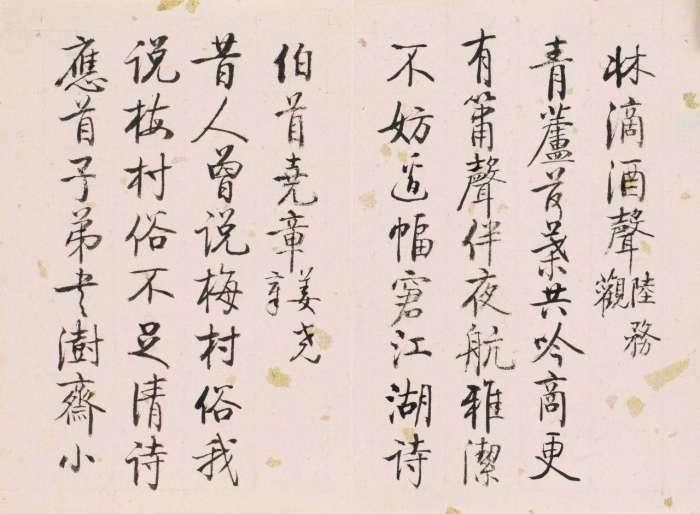 牀滴酒聲陸務觀
青蘆葉共吟商更
有簫聲伴夜航雅潔
不妨邊幅窘江湖诗
伯首堯章姜尧章
昔人曾说梅村俗我
说梅村俗不足清诗
應首子弟澍齋小